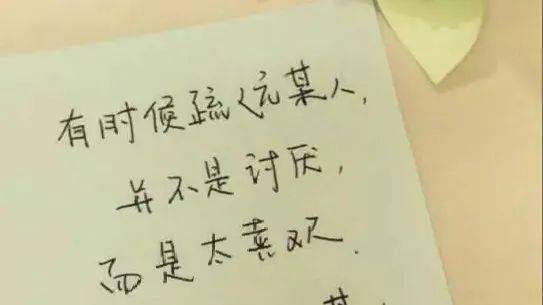 有时候疏远某人,
并不是讨厌,
而是太喜欢.